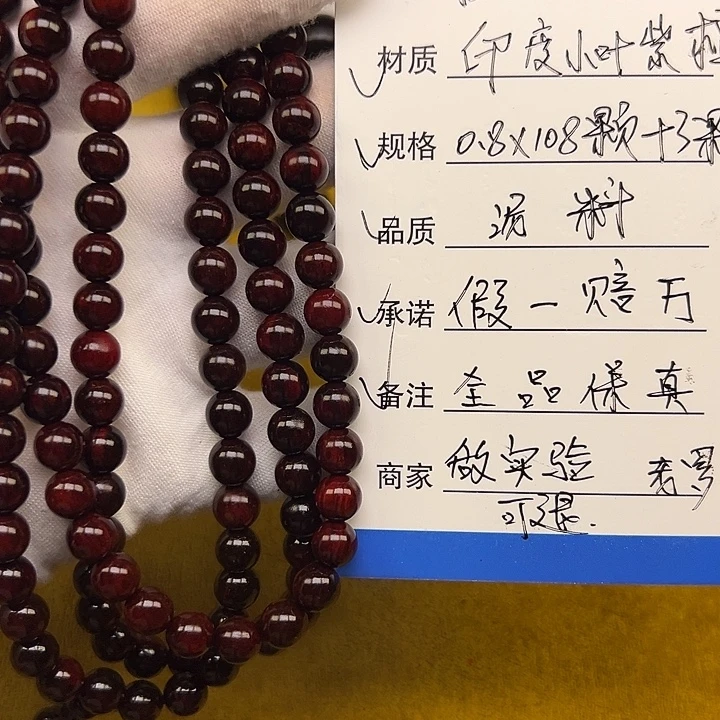 材质 印度小叶紫檀
规格 0.8×108颗+3颗
品质 泥料
承诺 假一赔万
备注 全品保真
商家 做实验 老罗
可退.